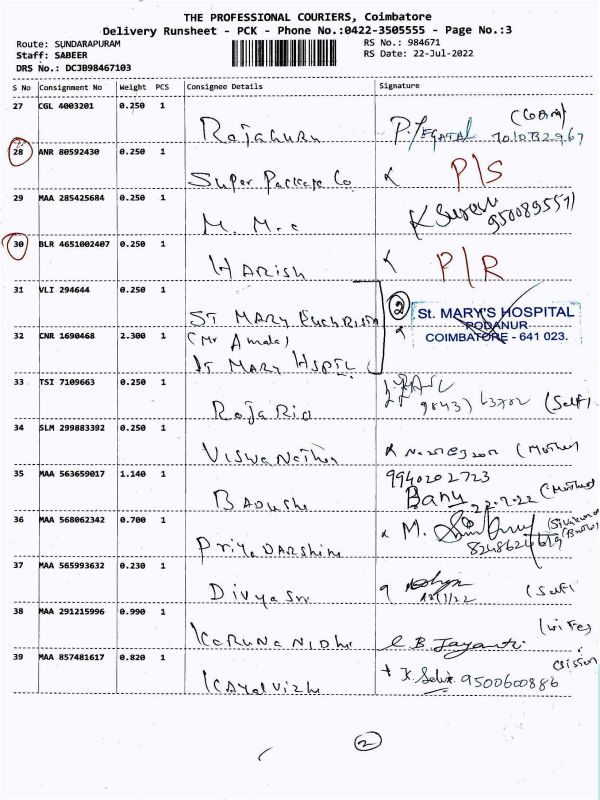 THE PROFESSIONAL COURIERS, Coimbatore
Delivery Runsheet - PCK - Phone No.:0422-3505555 - Page No.:3
Route: SUNDARAPURAM RS No.: 984671
Staff: SABEER RS Date: 22-Jul-2022
DRS No.: DCJB98467103
S No Consignment No Weight PCS Consignee Details Signature
27 CGL 4003201 0.250 1
Rajaguru
28 ANR 80592430 0.250 1
Super Package Co P/S
29 MAA 285425684 0.250 1
M. M. C
30 BLR 4651002407 0.250 1
HARISH P/R
31 VLI 294644 0.250 1
ST MARY EUCHRISTA 2 St. MARY'S HOSPITAL
PODANUR
32 CNR 1690468 2.300 1 (Mr Amala) COIMBATORE - 641 023.
ST MARY HSPTL
33 TSI 7109663 0.250 1
Raja Rio (Self)
34 SLM 299883392 0.250 1
Viswanathan (Mother)
35 MAA 563659017 1.140 1 9940202723
Banu 22.7.22 (Mother)
36 MAA 568062342 0.700 1 M.
Priya DARSHINI 8248624619
37 MAA 565993632 0.230 1
Divyasri (Self)
38 MAA 291215996 0.990 1 (Wife)
KARUNANIDHI B. Jayanti
39 MAA 857481617 0.820 1
Kayalvizhi 9500600886
2